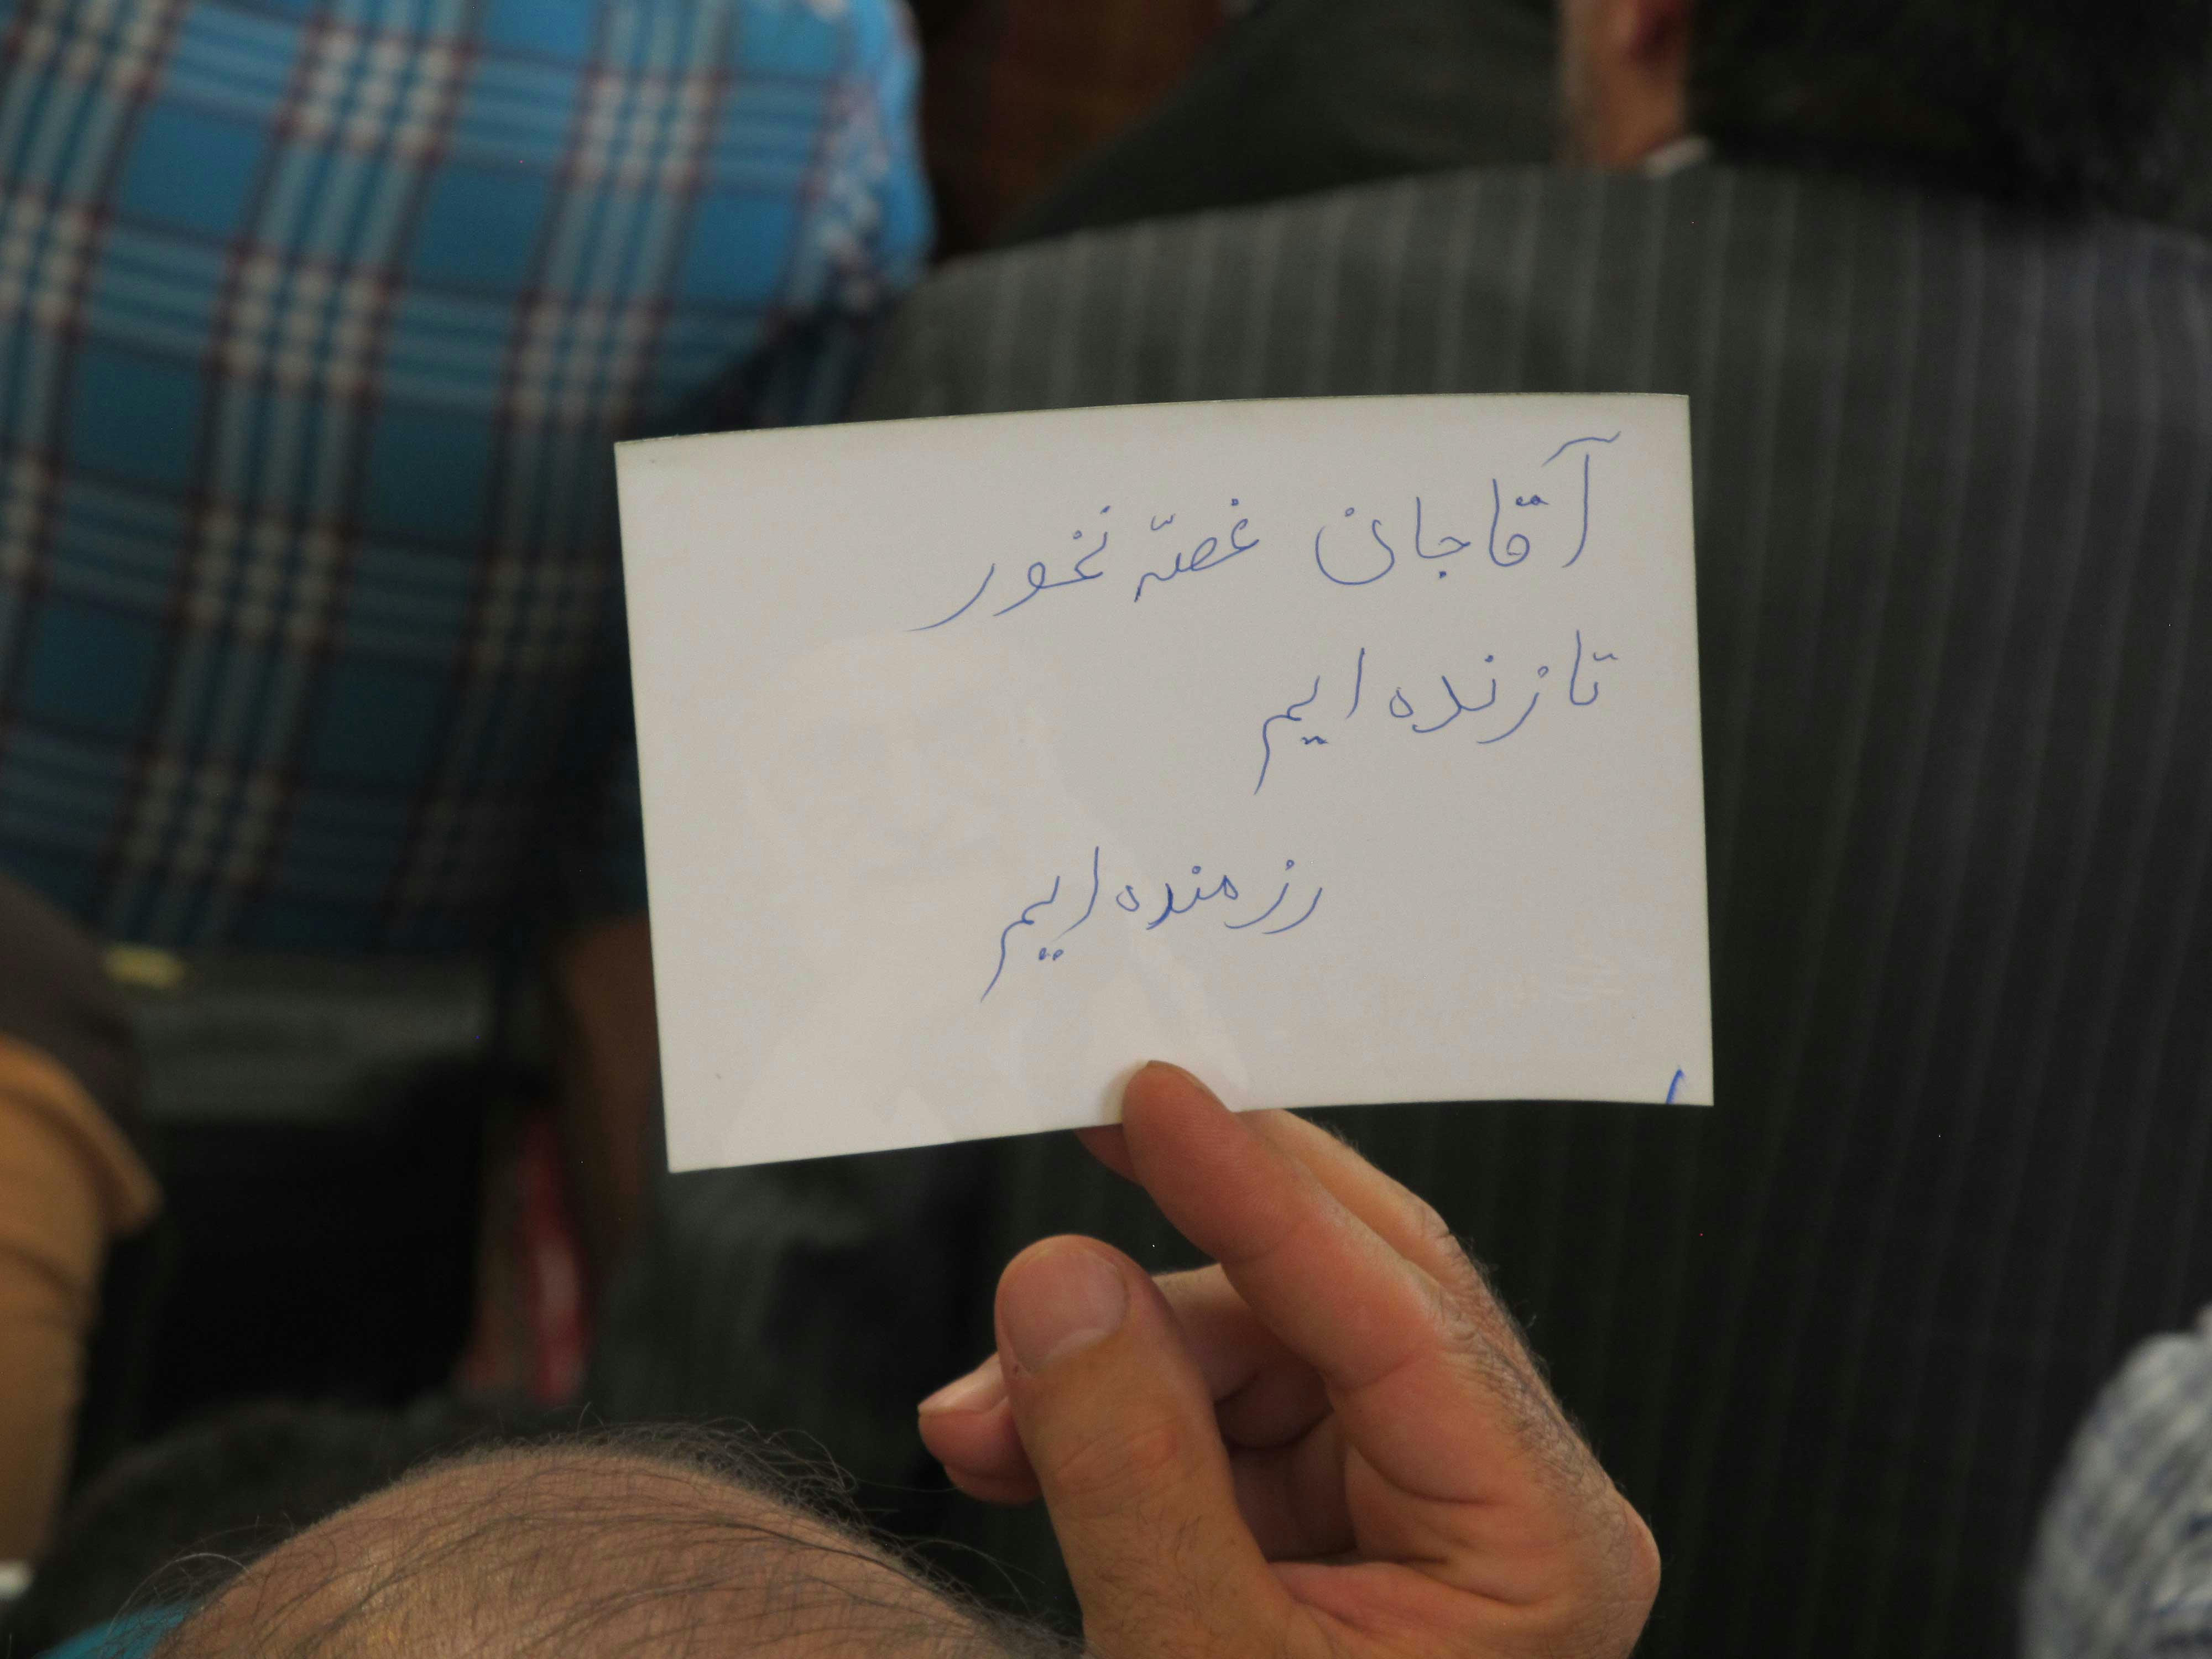 آقا جان غصّه نخور
تا زنده ایم
رزمنده ایم